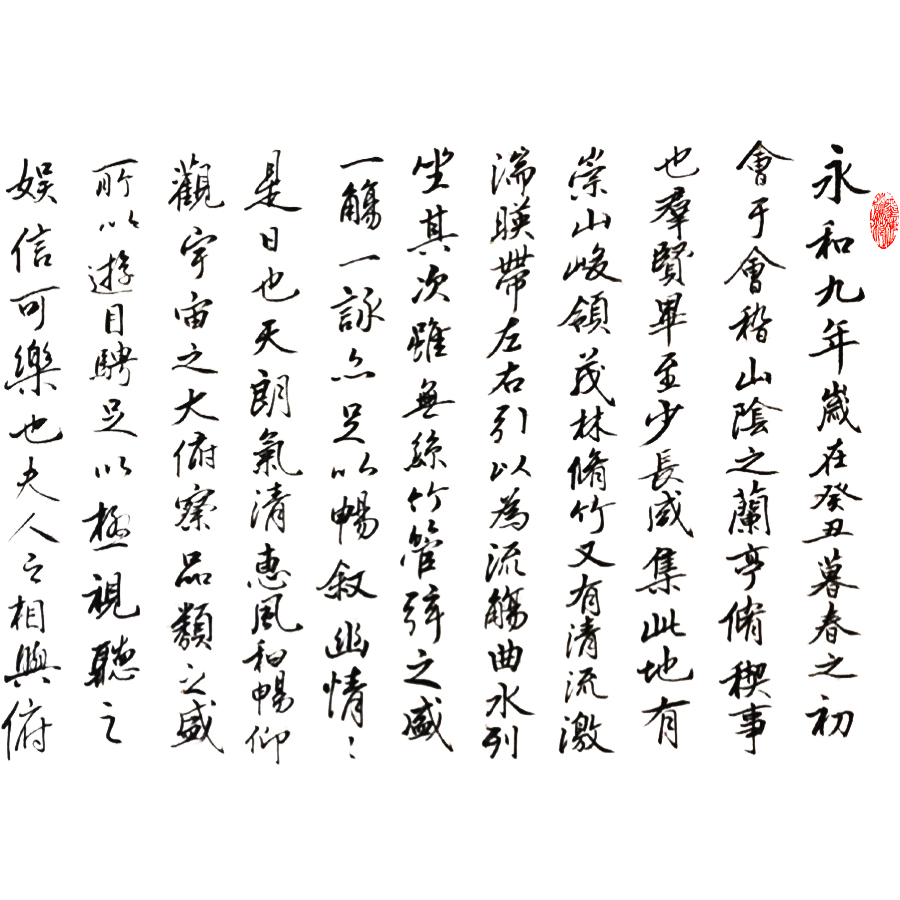 永和九年歲在癸丑暮春之初
會于會稽山陰之蘭亭脩稧事
也羣賢畢至少長咸集此地有
崇山峻領茂林脩竹又有清流激
湍暎帶左右引以為流觴曲水列
坐其次雖無絲竹管弦之盛
一觴一詠亦足以暢叙幽情
是日也天朗氣清惠風和暢仰
觀宇宙之大俯察品類之盛
所以遊目騁足以極視聽之
娛信可樂也夫人之相與俯